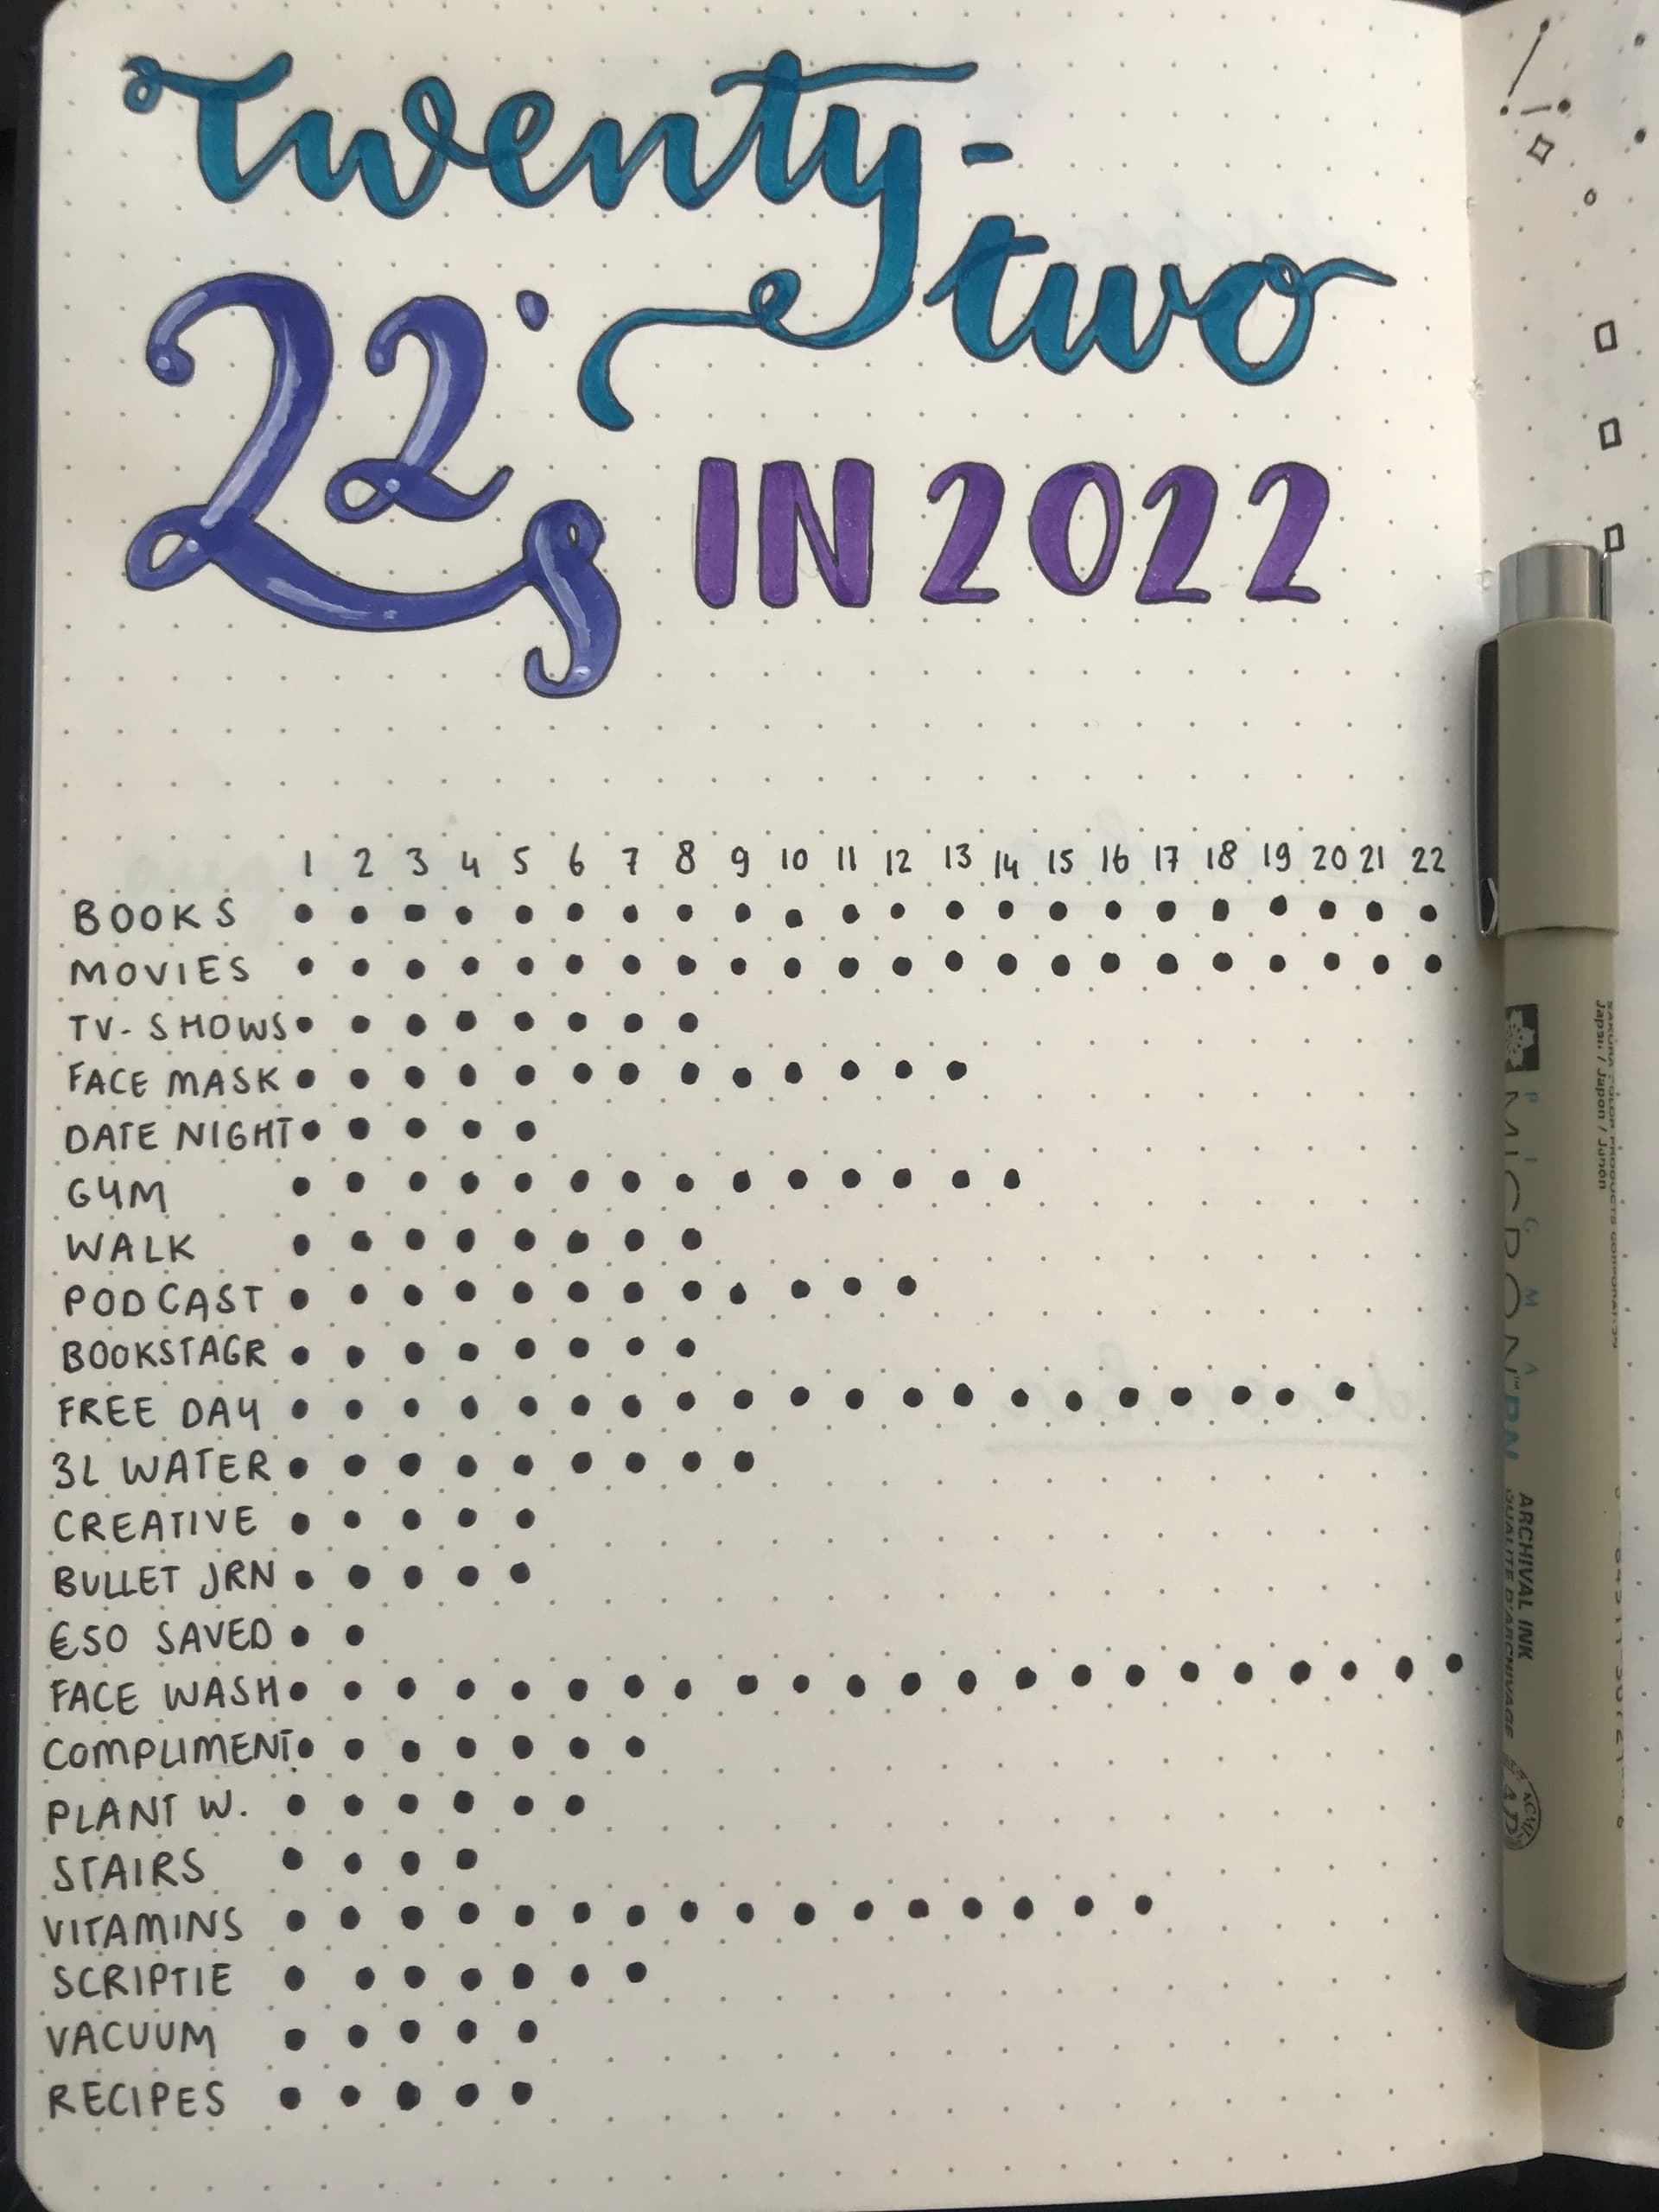 Twenty-
two
22's
IN 2022
1 2 3 4 5 6 7 8 9 10 11 12 13 14 15 16 17 18 19 20 21 22
BOOKS
MOVIES
TV-SHOWS
FACE MASK
DATE NIGHT
GYM
WALK
PODCAST
BOOKSTAGR
FREE DAY
3L WATER
CREATIVE
BULLET JRN
€50 SAVED
FACE WASH
COMPLIMENT
PLANT W.
STAIRS
VITAMINS
SCRIPTIE
VACUUM
RECIPES
december
PIGMA
MICRON™ PN
ARCHIVAL INK
QUALITE D'ARCHIVAGE
SAKURA COLOR PRODUCTS CORPORATION
Japan / Japon / Japón